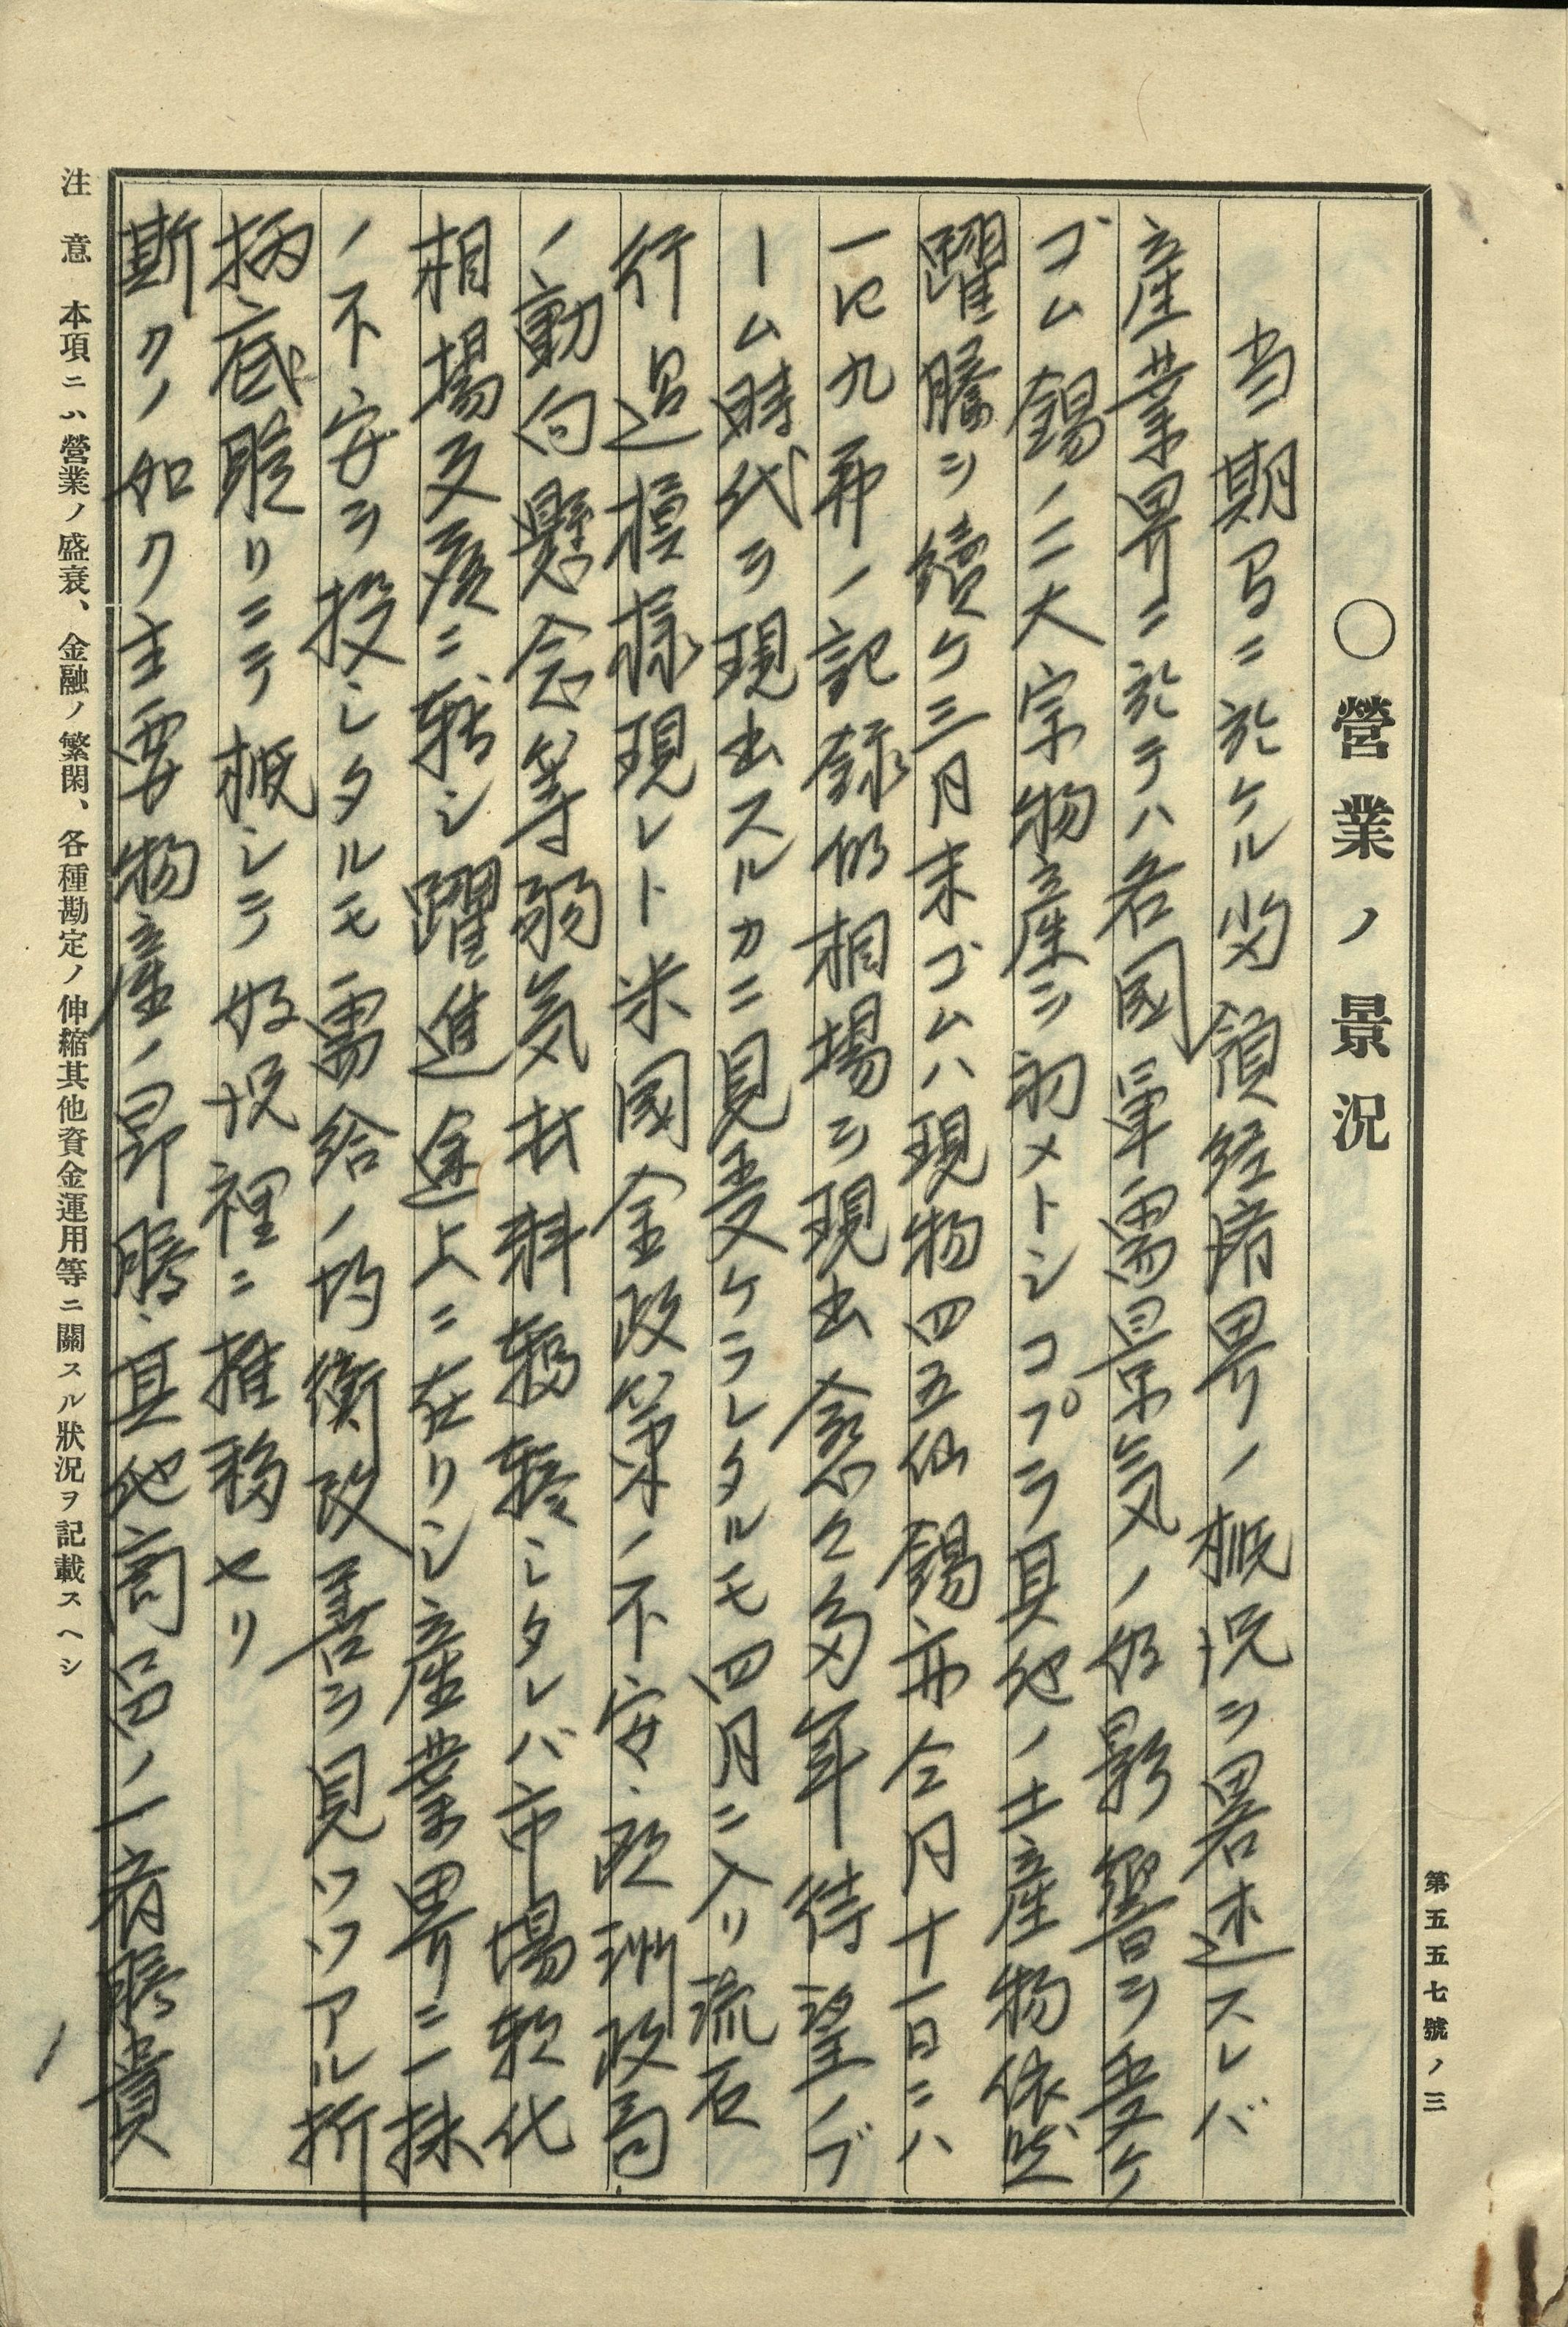 第五五七號ノ三
○營業ノ景況
当期間ニ於ケル当領経済界ノ概況ヲ畧述スレバ
産業界ニ於テハ各國軍需景気ノ好影響ヲ受ケ
ゴム錫ノ二大宗物産ヲ初メトシコプラ其他ノ土産物依然
躍騰ヲ續ケ三月末ゴムハ現物四五仙錫亦今月十一日ニハ
一九二九年ノ記録的相場ヲ現出愈々多年待望ノブ
ーム時代ヲ現出スルカニ見受ケラレタルモ四月ニ入リ流石
行過模様現レト米國金政策ノ不安、欧洲政局
ノ動向懸念等弱気材料輻輳シタレバ市場軟化
相場反落ニ転シ躍進途上ニ在リシ産業界ニ一抹
ノ不安ヲ投シタルモ需給ノ均衡改善ヲ見ツツアル折
柄底堅リニテ概シテ好況裡ニ推移セリ
斯クノ如ク主要物産ノ昂騰、其他商品ノ一齊騰貴
注意 本項ニハ營業ノ盛衰、金融ノ繁閑、各種勘定ノ伸縮其他資金運用等ニ關スル狀況ヲ記載スヘシ